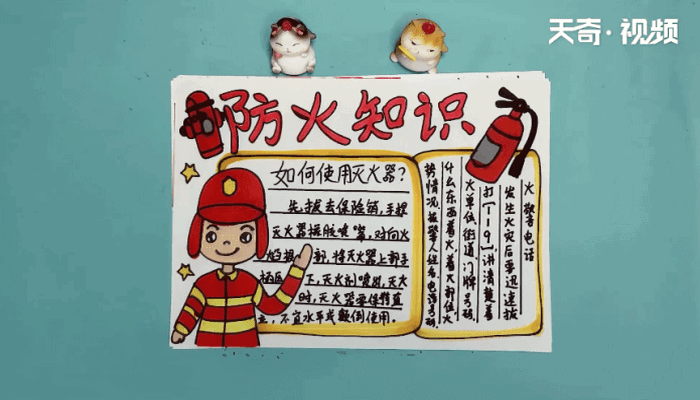 天奇·视频
防火知识
如何使用灭火器?
先拔去保险销,手握
灭火器橡胶喷嘴,对向火
焰根部,将灭火器上部手
柄压下,灭火剂喷出,灭火
时,灭火器要保持直
立,不宜水平或颠倒使用。
火警电话
发生火灾后要迅速拔
打【119】,讲清楚着
火单位,街道,门牌号码,
什么东西着火,着火部位火
势情况,报警人姓名,电话号码,